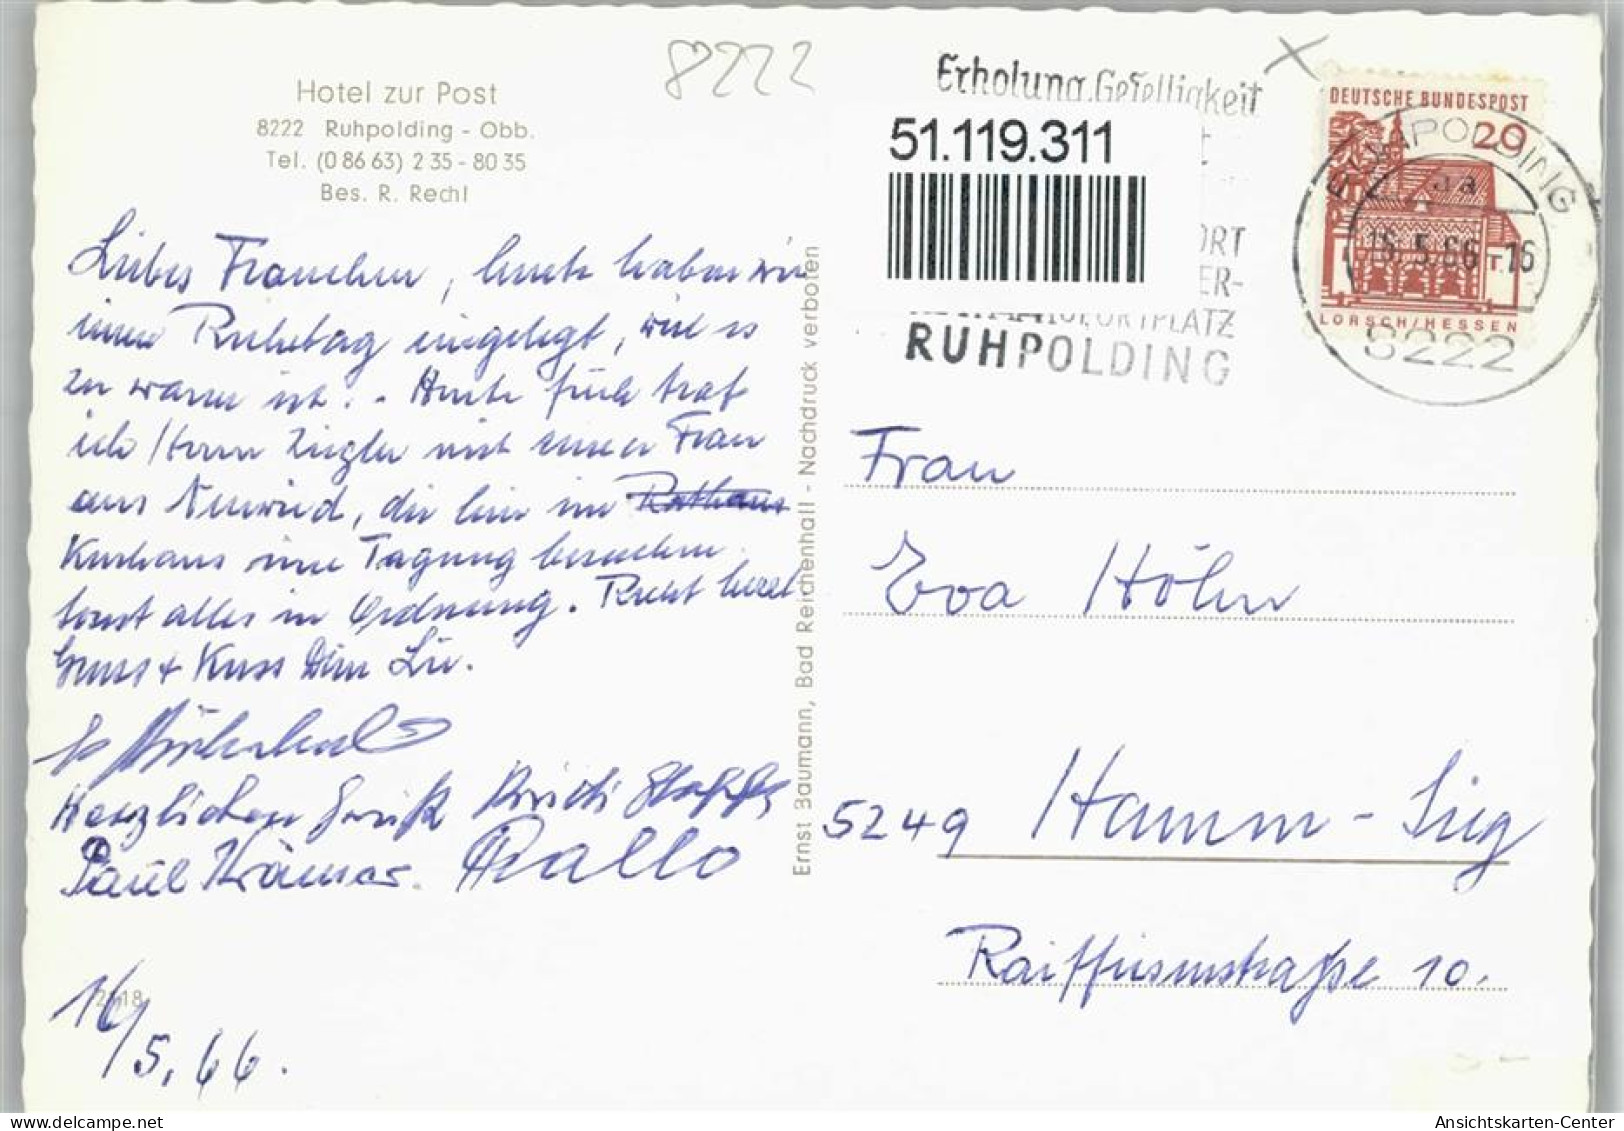 8222
Hotel zur Post
8222 Ruhpolding - Obb.
Tel. (0 86 63) 2 35 - 80 35
Bes. R. Rechl
Liebes Frauchen, heute haben wir
einen Ruhetag eingelegt, weil es
zu warm ist. - Heute früh traf
ich Herrn Ziegler mit seiner Frau
aus Neuwied, die hier im Rathaus
Kurhaus eine Tagung besuchen.
Sonst alles in Ordnung. Recht herzl.
Gruss + Kuss Dein
Herzlichen
Paul Krämer.
16/5.66.
2118
Ernst Baumann, Bad Reichenhall - Nachdruck verboten
Erholung, Geselligkeit
51.119.311
ORT
ER-
SPORTPLATZ
RUHPOLDING
DEUTSCHE BUNDESPOST
20
LORSCH/HESSEN
RUHPOLDING
5.66-16
8222
Frau
Eva Höhn
5249 Hamm-Sieg
Raiffeisenstraße 10.
Ansichtskarten-Center
delcampe.net